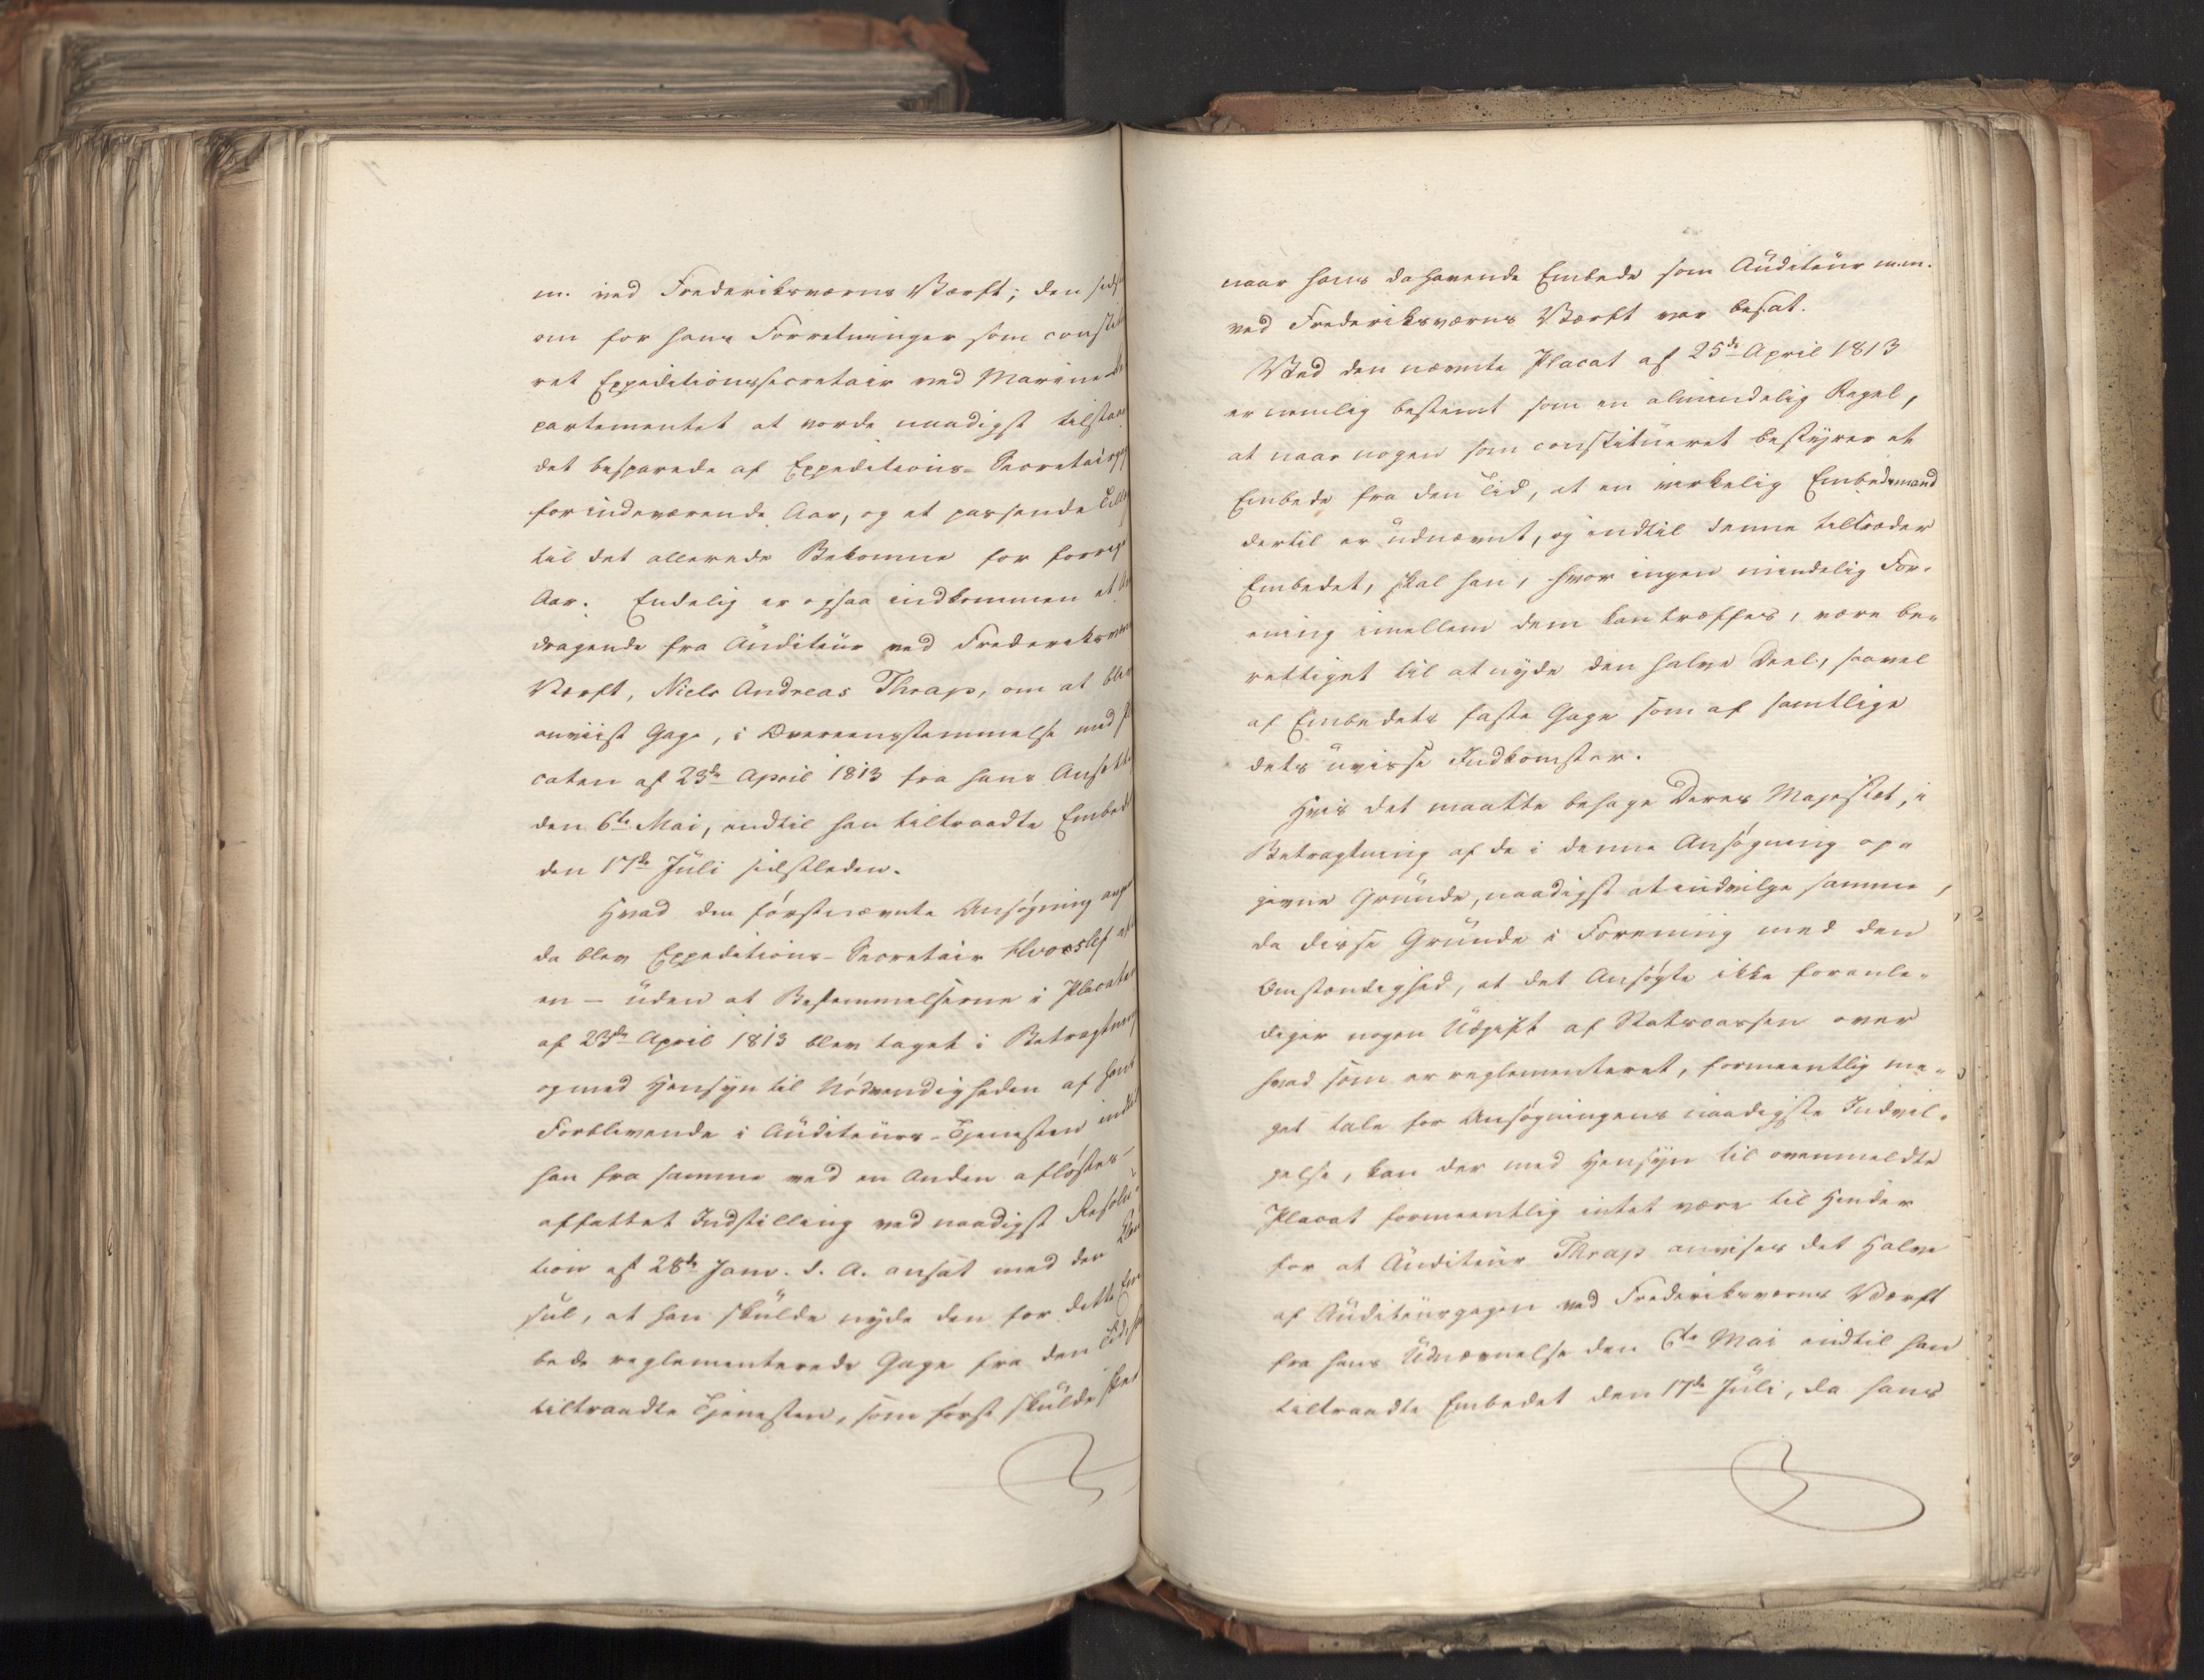 m. ved Frederiksværns Værft; den sidst
om for hans Forretninger som constitu
ret Expeditionssecretair ved Marine-De
partementet at vorde naadigst tilstaa
det besparede af Expeditions-Secretairga
for indeværende Aar, og et passende Till
til det allerede Bekomne for forrige
Aar. Endelig er ogsaa indkommen et An
dragende fra Auditeur ved Frederiksvær
Værft, Niels Andreas Thrap, om at blive
anviist Gage, i Overeensstemmelse med Pla
caten af 23de April 1813 fra hans Ansætte
den 6te Mai, indtil han tiltraadte Embed
den 17de Juli sidstleden.
Hvad den förstnævnte Ansøgning anga
da blev Expeditions-Secretair Hvoslef
en - uden at Bestemmelserne i Placaten
af 23de April 1813 blev taget i Betragtning
og med Hensyn til Nödvendigheden af hans
Forblivende i Auditeurs-Tjenesten indtil
han fra samme ved en Anden aflöstes-
affattet Indstilling ved naadigst Resolu-
tion af 28de Janv. d. A. ansat med den Clau
sul, at han skulde nyde den for dette Em
bede reglementerede Gage fra den Tid han
tiltraadte Tjenesten, som först skulde skee
naar hans dahavende Embede som Auditeur m.m.
ved Frederiksværns Værft var besat.
Ved den nævnte Placat af 25de April 1813
er nemlig bestemt som en almindelig Regel,
at naar nogen som constitueret bestyrer et
Embede fra den Tid, at en virkelig Embedsmand
dertil er udnævnt, og indtil denne tiltræder
Embedet, skal han, hvor ingen mindelig For-
ening imellem dem kan træffes, være be-
rettiget til at nyde den halve Deel, saavel
af Embedets faste Gage som af samtlige
dets uvisse Indkomster.
Hvis det maatte behage Deres Majestæt, i
Betragtning af de i denne Ansøgning op-
givne Grunde, naadigst at indvilge samme,
da disse Grunde i Forening med den
Omstændighed, at det Ansøgte ikke foranle-
diger nogen Udgift af Statscassen over
hvad som er reglementeret, formeentlig me-
get tale for Ansøgningens naadigste Indvil-
gelse, kan der med Hensyn til ovenmeldte
Placat formeentlig intet være til Hinder
for at Auditeur Thrap anvises det Halve
af Auditeurgagen ved Frederiksværns Værft
fra hans Udnævnelse den 6te Mai indtil han
tiltraadte Embedet den 17de Juli, da hans